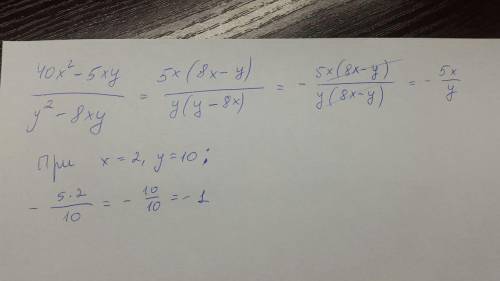 (40x² - 5xy)/(y² - 8xy) = 5x(8x - y)/y(y - 8x) = - 5x(8x - y)/y(8x - y) = - 5x/y
При x = 2, y = 10:
- 5·2/10 = - 10/10 = - 1